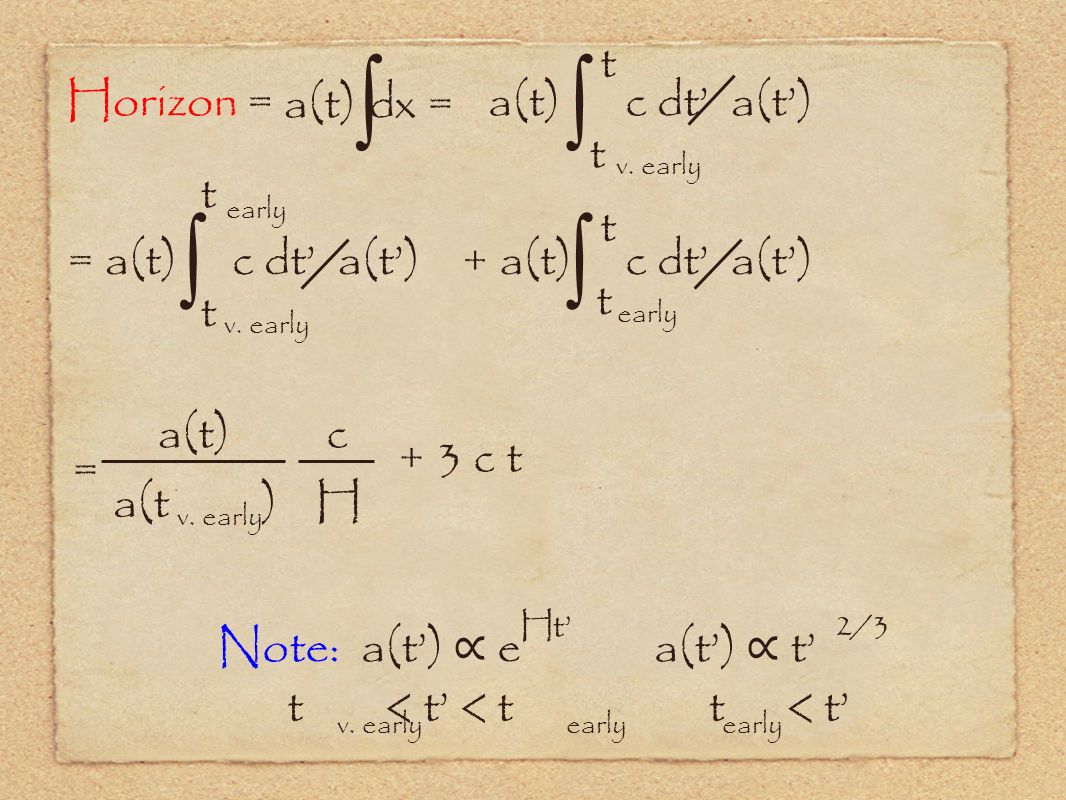 Horizon = a(t) ∫ dx = a(t) ∫ t v. early t c dt’ / a(t’)
= a(t) ∫ t v. early t early c dt’ / a(t’) + a(t) ∫ t early t c dt’ / a(t’)
= a(t) / a(t v. early) c / H + 3 c t
Note: a(t’) ∝ e Ht’ a(t’) ∝ t’ 2/3
t v. early < t’ < t early t early < t’